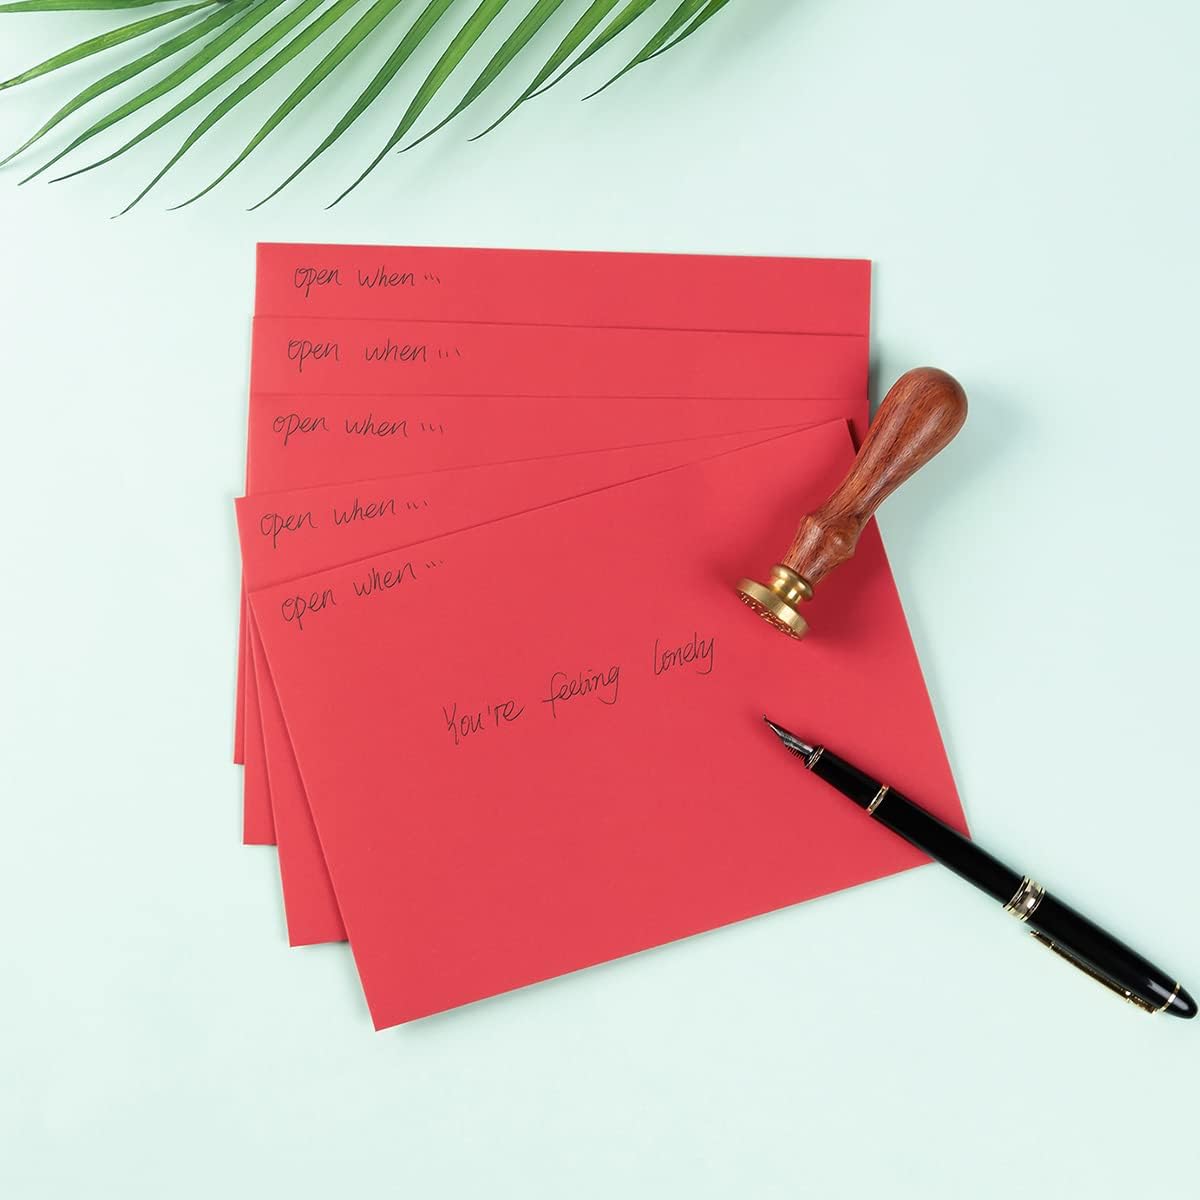 open when...
open when...
open when...
open when...
open when...
You're feeling lonely